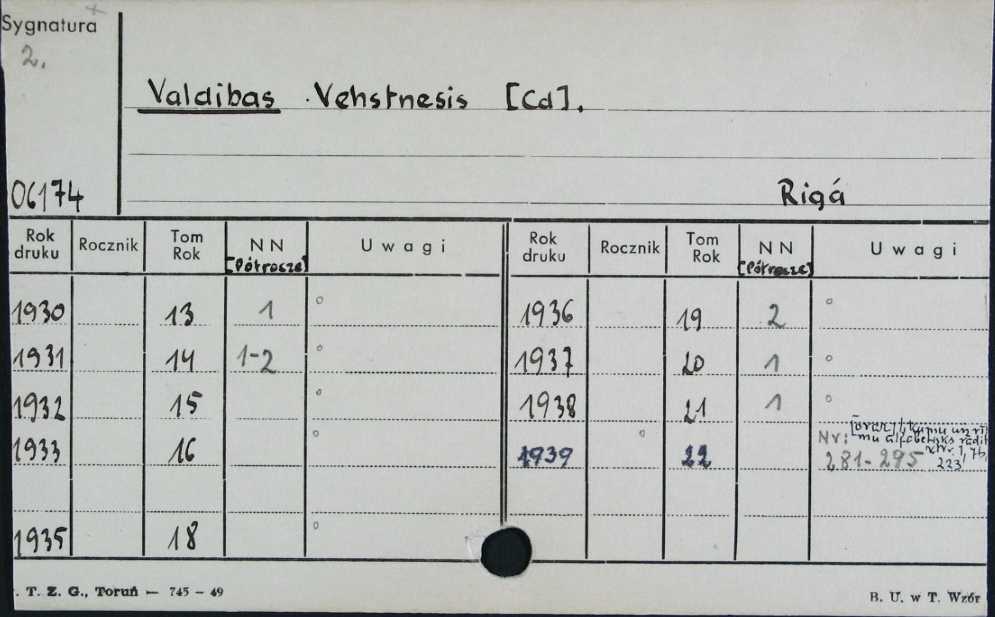 Sygnatura
2.
Valdibas Vehstnesis [Cd].
06174 Rigá
Rok druku Rocznik Tom Rok NN [Półrocze] Uwagi Rok druku Rocznik Tom Rok NN [Półrocze] Uwagi
1930 13 1 1936 19 2
1931 14 1-2 1937 20 1
1932 15 1938 21 1
1933 16 1939 22 Nr: 281-295 223
1935 18
T. Z. G., Toruń — 745 — 49 B. U. w T. Wzór